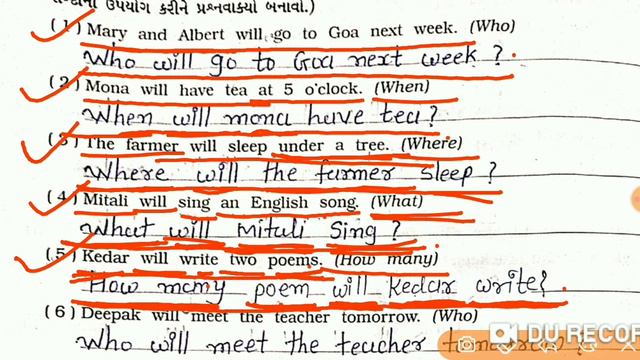 ઉપયોગ કરીને પ્રશ્નવાક્યો બનાવો.)
(1) Mary and Albert will go to Goa next week. (Who)
Who will go to Goa next week ?
(2) Mona will have tea at 5 o'clock. (When)
When will mona have tea ?
(3) The farmer will sleep under a tree. (Where)
Where will the farmer sleep ?
(4) Mitali will sing an English song. (What)
What will Mitali Sing ?
(5) Kedar will write two poems. (How many)
How many poem will Kedar write?
(6) Deepak will meet the teacher tomorrow. (Who)
Who will meet the teacher tomorrow ?
DU RECOR